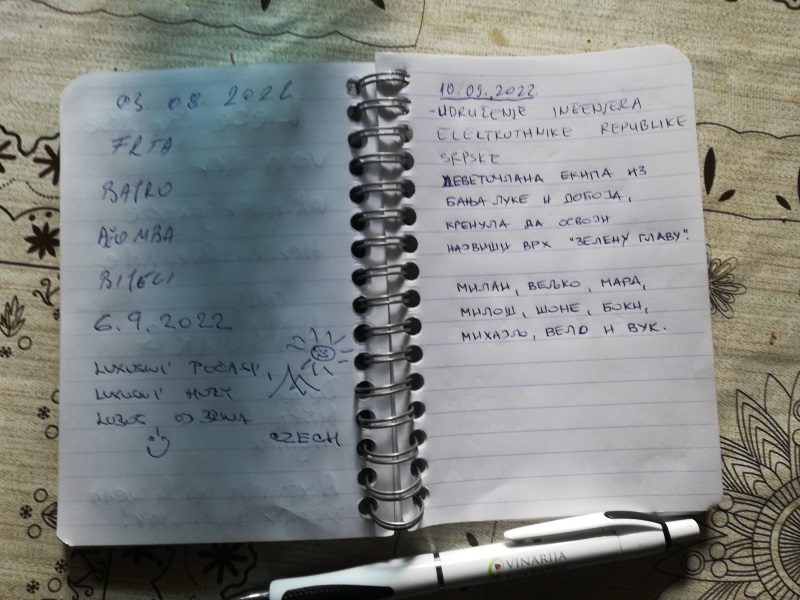 03 08 2022
FRTA
BAJRO
DŽOMBA
BIJELI
6.9.2022
LUXUSNÍ POČASÍ,
LUXUSNÍ HORY
LUBOŠ
CZECH
10.09.2022.
-UDRUŽENJE INŽENJERA
ELEKTROTHNIKE REPUBLIKE
SRPSKE
ДЕВЕТОЧЛАНА ЕКИПА ИЗ
БАЊА ЛУКЕ И ДОБОЈА,
КРЕНУЛА ДА ОСВОЈИ
НАЈВИШИ ВРХ "ЗЕЛЕНУ ГЛАВУ".
МИЛАН, ВЕЉКО, МАРА,
МИЛОШ, ШОНЕ, БОКИ,
МИХАЈЛО, ВЕЛО И ВУК.
VINARIJA